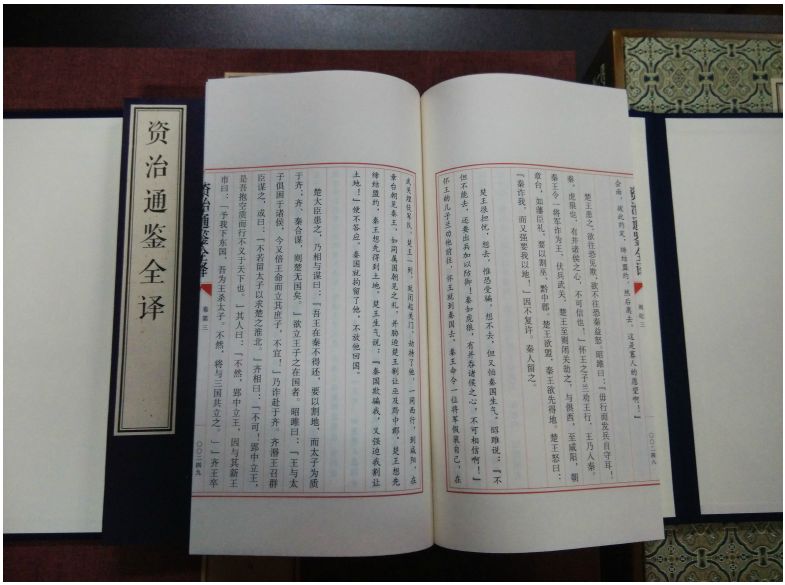 会面，彼此约定，缔结盟约，然后离去，这是寡人的愿望啊！」
楚王患之，欲往恐见欺，欲不往恐秦益怒。昭雎曰：「毋行而发兵自守耳！
秦，虎狼也，有并诸侯之心，不可信也！」怀王之子兰劝王行，王乃入秦。
秦王令一将军诈为王，伏兵武关，楚王至则闭关劫之，与俱西，至咸阳，朝
章台，如藩臣礼，要以割巫、黔中郡。楚王欲盟，秦王欲先得地。楚王怒曰：
「秦诈我，而又强要我以地！」因不复许。秦人留之。
楚王很担忧，想去，惟恐受骗，想不去，但又怕秦国生气。昭雎说：「不
但不能去，还要出兵加以防御！秦如虎狼，有并吞诸侯之心，不可相信啊！」
怀王的儿子兰劝他前往，怀王就到秦国去。秦王命令一位将军假装自己，在
资治通鉴全译
周纪三
〇〇二四八
武关埋伏军队，楚王一到，就闭起关门，劫持了他，一同西行，到咸阳，在
章台朝见秦王，如同属国朝见之礼，并胁迫楚王割让巫及黔中郡，楚王想先
缔结盟约，秦王想先得到土地。楚王生气说：「秦国欺骗我，又强迫我割让
土地！」便不答应。秦国就拘留了他，不放他回国。
楚大臣患之，乃相与谋曰：「吾王在秦不得还，要以割地，而太子为质
于齐；齐、秦合谋，则楚无国矣。」欲立王子之在国者。昭雎曰：「王与太
子俱困于诸侯，今又倍王命而立其庶子，不宜！」乃诈赴于齐。齐湣王召群
臣谋之，或曰：「不若留太子以求楚之淮北。」齐相曰：「不可！郢中立王，
是吾抱空质而行不义于天下也。」其人曰：「不然，郢中立王，因与其新王
市曰：『予我下东国，吾为王杀太子。不然，将与三国共立之。』」齐王卒
资治通鉴全译
卷第三
〇〇二四九
资治通鉴全译